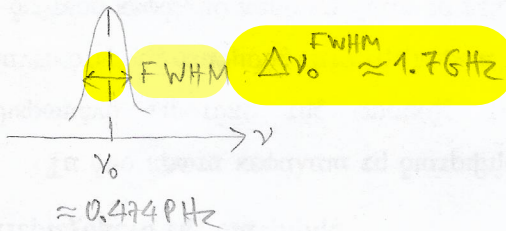 FWHM Δν₀^FWHM ≈ 1.7GHz
ν
ν₀
≈ 0.474PHz